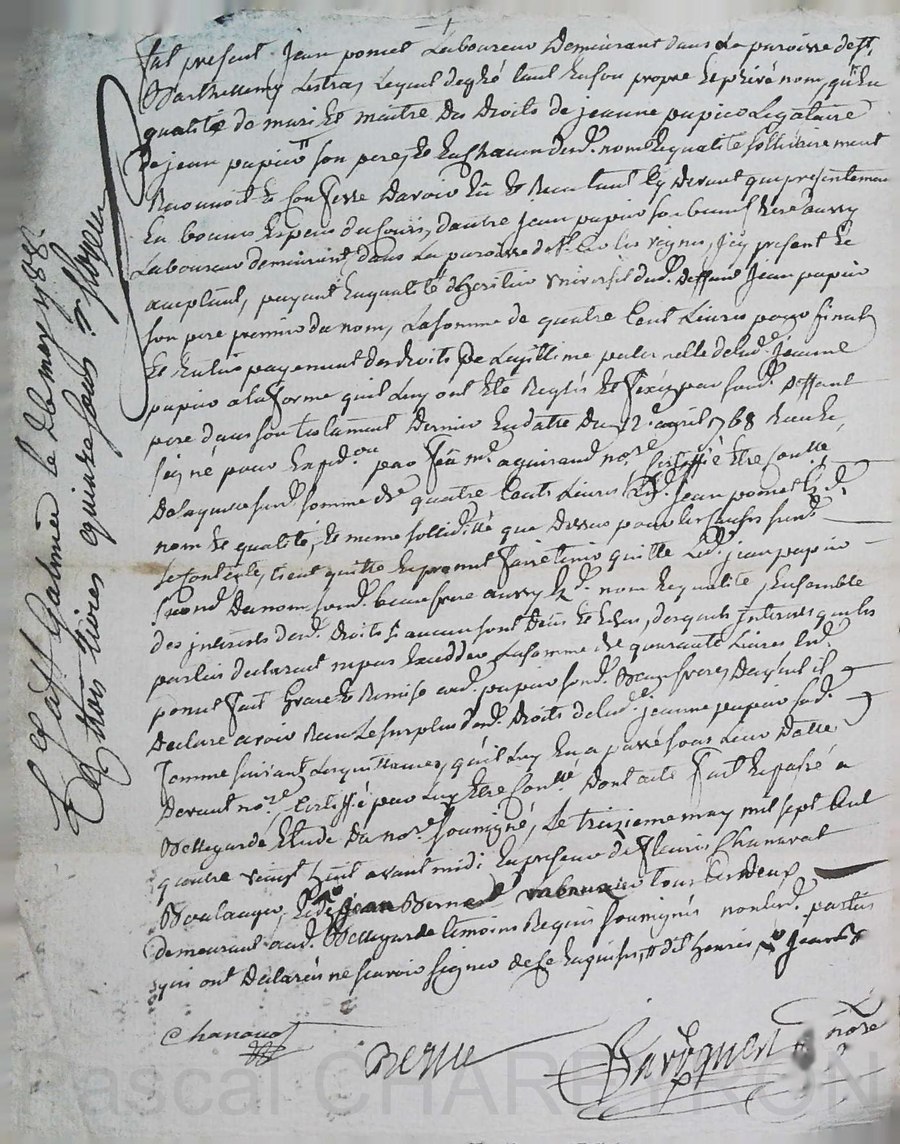 fut present Jean poncet Laboureur Demeurant dans La paroisse de St
Barthellemy Lestra, Lequel de gré tant En son propre Et privé nom, qu'En
qualité de mari Et maitre Des Droits de jeanne papier Legataire
de jean papier son pere, Et En Chacun desd. noms Et qualité sollidairement
Reconnoit Et Confesse Davoir Eu Et Receu tant Cy Devant que presentement
En bonnes Especes du Cours, d'autre Jean papier son beau frere aussy
Laboureur demeurant dans La paroisse de St. les vignes, Icy present Et
acceptant, payant En qualité d'heritier universel dud. Deffunt Jean papier
son pere premier du nom, La somme de quatre Cent Livres pour final
Et Entier payement des droits De Legittime paternelle de lad. Jeanne
papier a la forme qu'il Luy ont Eté Reglés Et fixés par sond. Deffunt
pere dans son testament Dernier En datte Du 12e. avril 1768 Receu Et
signé pour Expedon par feu me. aguiraud nore.
De laquelle sud. somme de quatre Cents Livres Led. Jean poncet Esd.
nom Et qualité, Et meme sollidité que Dessus pour
Se Contente, tient quitte Et promet faire tenir quitte Led. jean papier
second Du nom sond. beau frere aussy Esd. nom Et qualité, Ensemble
des interests desd. droits si aucuns sont Deus Et Echus, desquels Interests que les
parties declarent n'Exceder La somme de quarante Livres Led.
poncet fait Grace Et Remise aud. papier sond. Beaufrere, Dautant il
Declare avoir Receu Le surplus desd. Droits de lad. Jeanne papier sad.
femme suivant Les quittances, qu'il Luy En a passé sous Leur Datte
Devant nore. Certiffié par Luy Etre Controllé Dont acte fait Et passé a
Bellegarde Etude Du nore. soussigné, Le treizieme may mil sept Cent
quatre vingt huit avant midi En presence de fleuris Chanavat
Boulanger, Et de Jean Bernard tous Les Deux
demeurant aud. Bellegarde temoins Requis soussignés non Les d. parties
qui ont Déclarés ne scavoir signer de Ce Enquises,
Chanavat
nore
a St Galmier le 26 may 1788
trois livres quinze sous